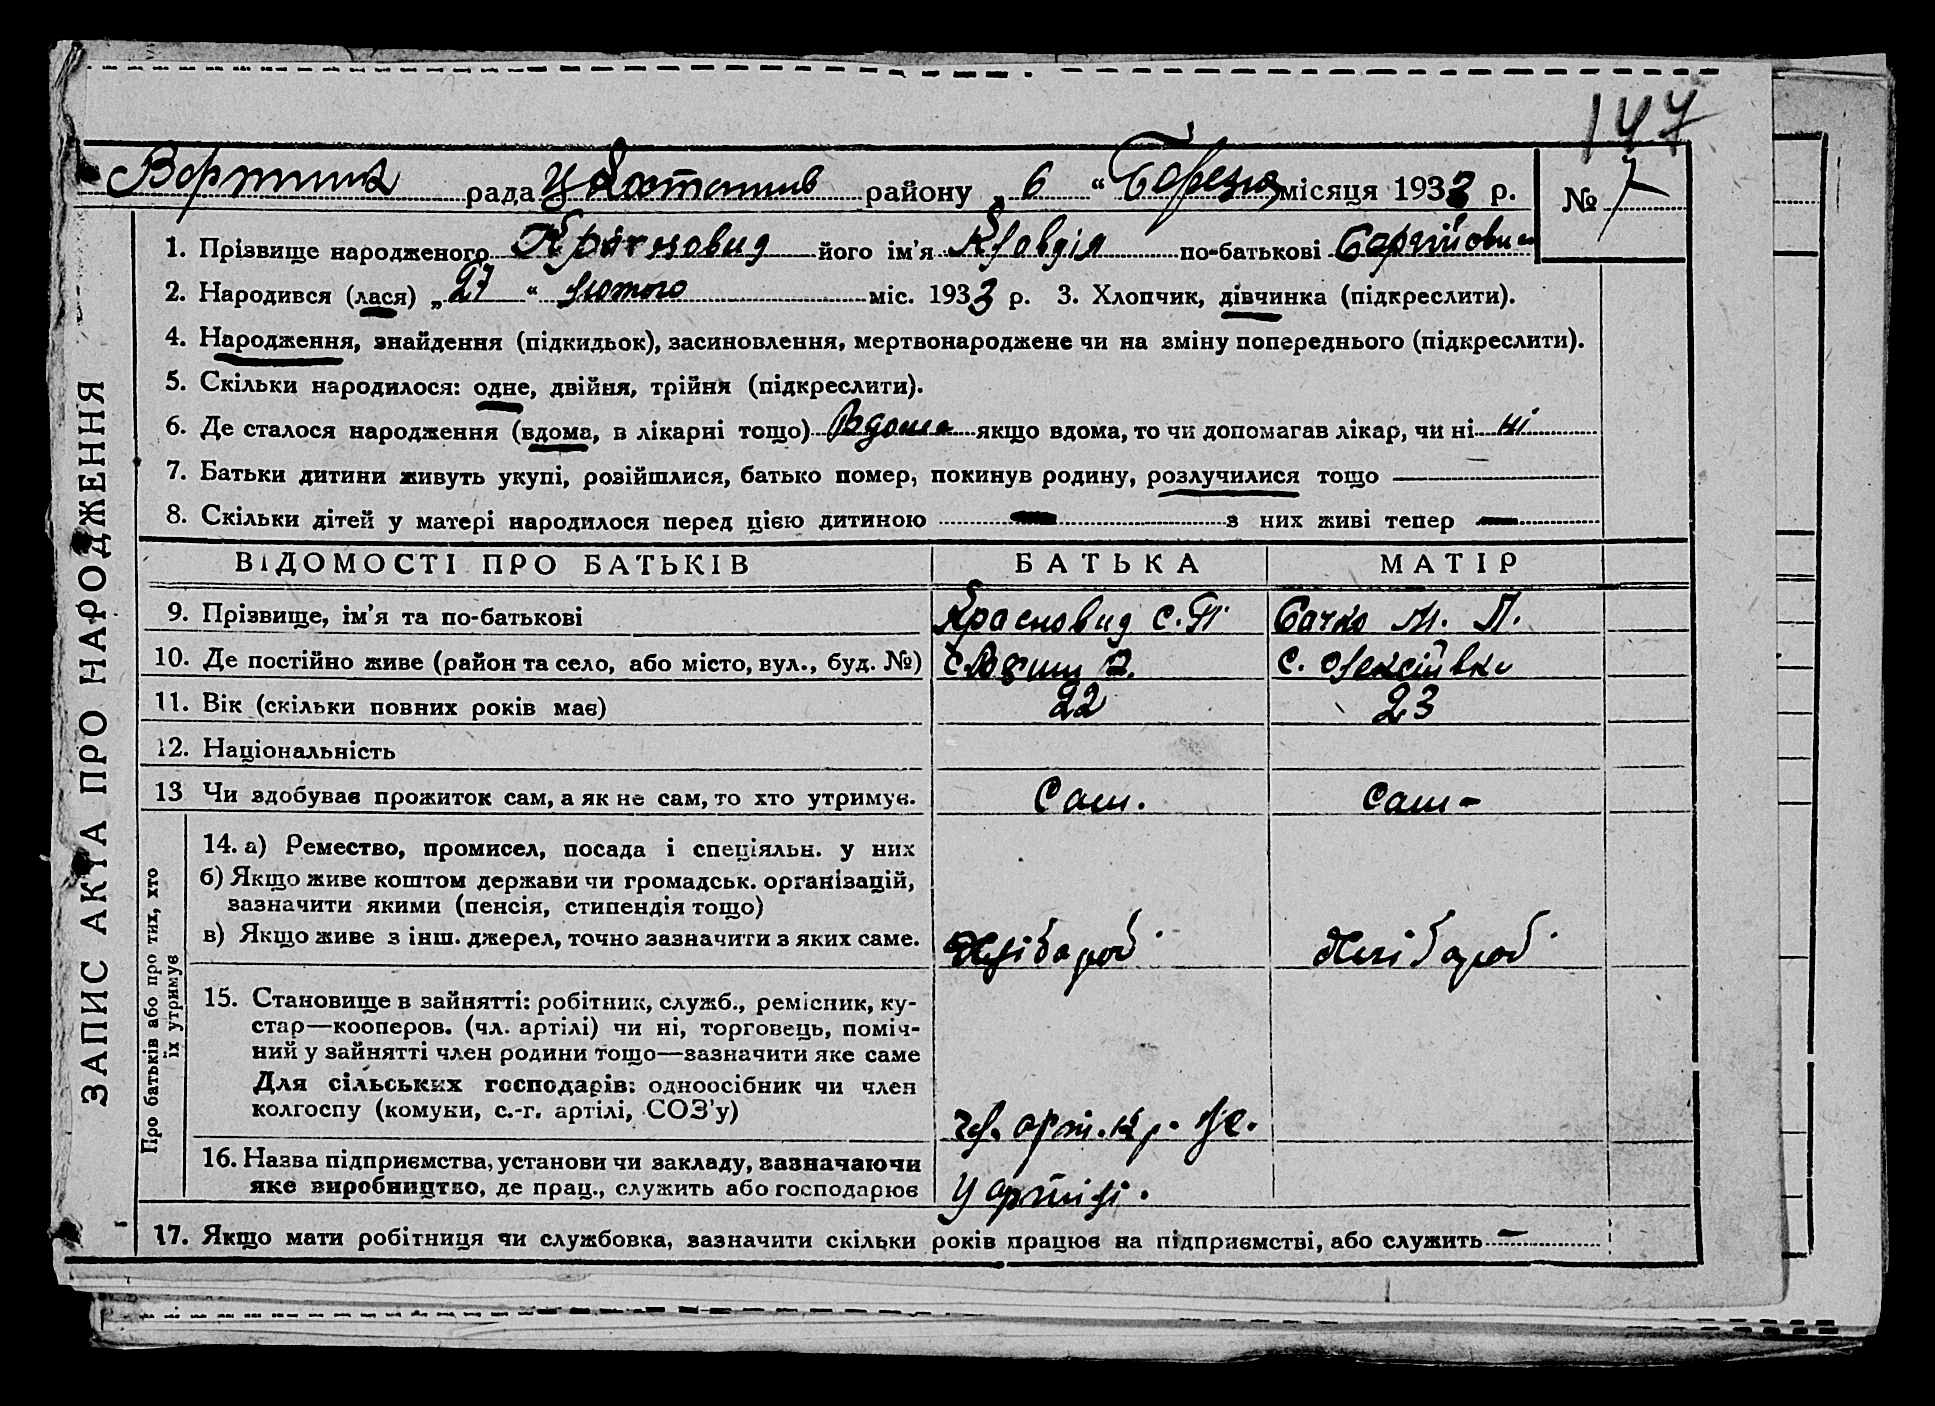 147
рада району „ 6 “ Березня місяця 1933 р. № 7
1. Прізвище народженого Красновид його ім’я Клавдія по-батькові Сергійовна
2. Народився (лася) „ 27 “ лютого міс. 1933 р. 3. Хлопчик, дівчинка (підкреслити).
4. Народження, знайдення (підкидьок), засиновлення, мертвонароджене чи на зміну попереднього (підкреслити).
5. Скільки народилося: одне, двійня, трійня (підкреслити).
6. Де сталося народження (вдома, в лікарні тощо) Вдома якщо вдома, то чи допомагав лікар, чи ні ні
7. Батьки дитини живуть укупі, розійшлися, батько помер, покинув родину, розлучилися тощо —
8. Скільки дітей у матері народилося перед цією дитиною — з них живі тепер —
ВІДОМОСТІ ПРО БАТЬКІВ БАТЬКА МАТІР
9. Прізвище, ім’я та по-батькові Красновид С. П. Сачко М. П.
10. Де постійно живе (район та село, або місто, вул., буд. №) с. Олексіївка
11. Вік (скільки повних років має) 22 23
12. Національність
13 Чи здобуває прожиток сам, а як не сам, то хто утримує. Сам. сам -
14. а) Ремество, промисел, посада і спеціяльн. у них
б) Якщо живе коштом держави чи громадськ. організацій,
зазначити якими (пенсія, стипендія тощо)
в) Якщо живе з інш. джерел, точно зазначити з яких саме. Хлібороб Хлібороб
15. Становище в зайнятті: робітник, служб., ремісник, ку-
стар—кооперов. (чл. артілі) чи ні, торговець, поміч-
ний у зайнятті член родини тощо—зазначити яке саме
Для сільських господарів: одноосібник чи член
колгоспу (комуни, с.-г. артілі, СОЗ’у) чл. арт.
16. Назва підприємства, установи чи закладу, зазначаючи
яке виробництво, де прац., служить або господарює У артілі.
17. Якщо мати робітниця чи службовка, зазначити скільки років працює на підприємстві, або служить —
ЗАПИС АКТА ПРО НАРОДЖЕННЯ
Про батьків або про тих, хто
їх утримує